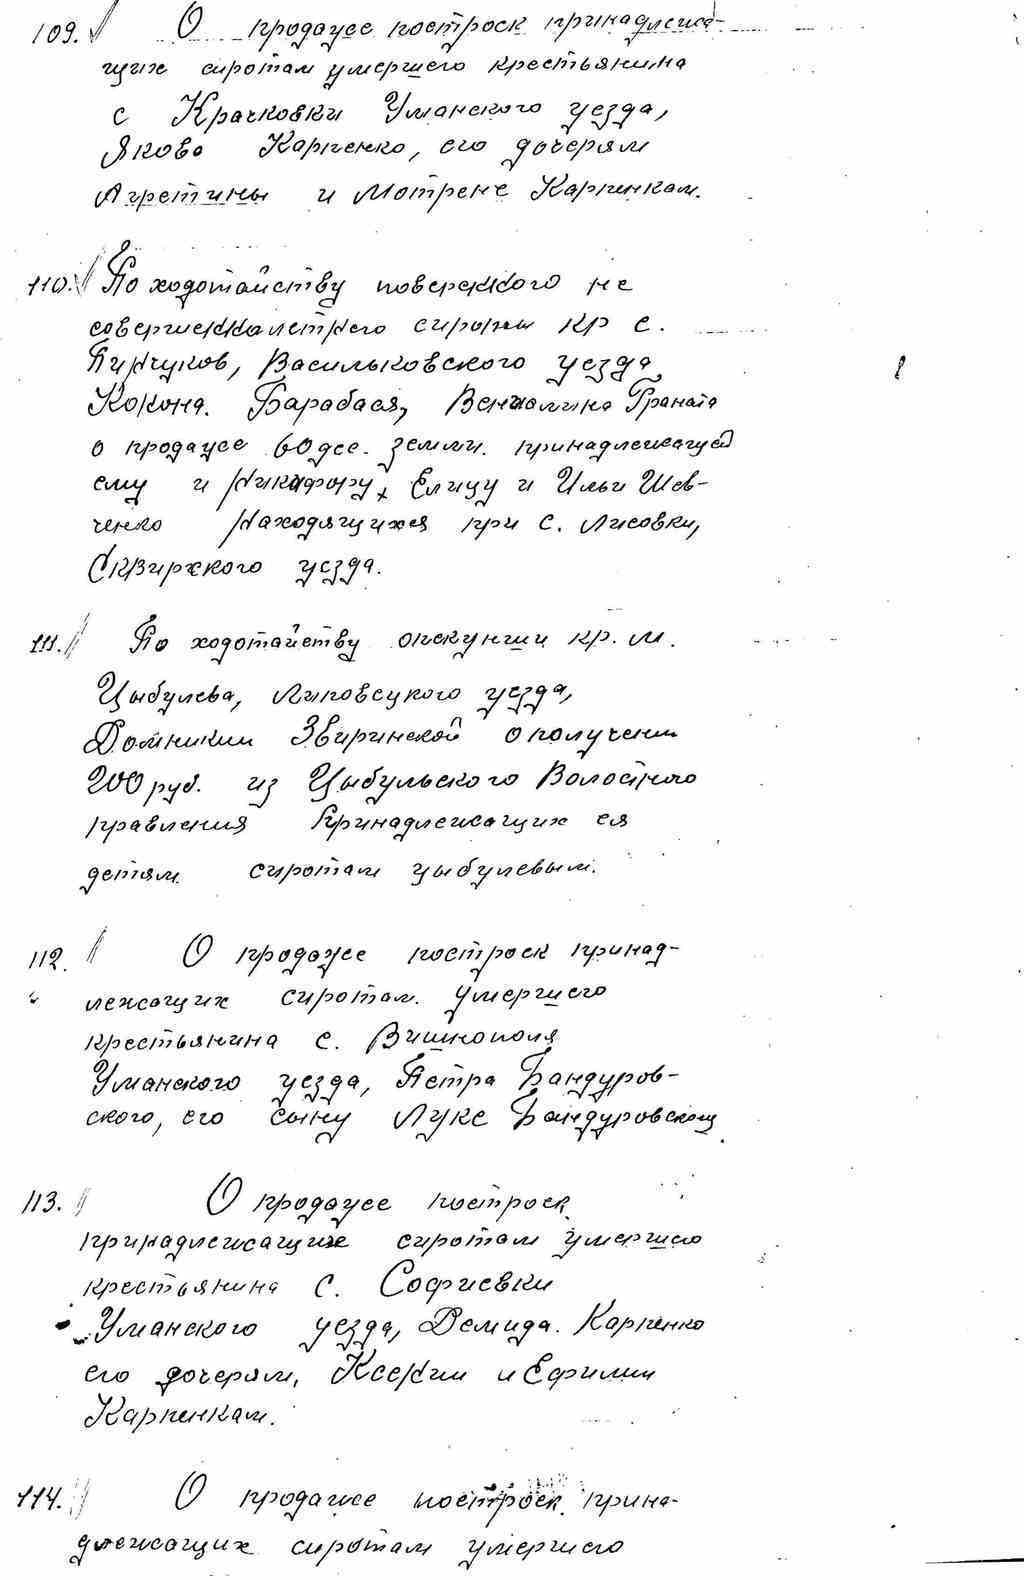 109. О продаже построек принадлежа-
щих сиротам умершего крестьянина
с Крачковки Уманского уезда,
Якова Карпенко, его дочерям
Агретины и Мотрене Карпенкам.
110. По ходотайству поверенного не
совершеннолетнего сироты кр с.
Пинчуков, Васильковского уезда
Конона Барабася, Вениамина Граната
о продаже 60 дес. земли принадлежащей
ему и Никифору, Елицу и Ильи Шев-
ченко находящихся при с. Лисовки,
Сквирхкого уезда.
111. По ходотайству опекунши кр. м.
Цыбулева, Липовецкого уезда,
Домникии Звиринской о получении
200 руб. из Цыбульского Волостного
правления принадлежащих ея
детям сиротам цыбулевым.
112. О продаже построек принад-
лежащих сиротам умершего
крестьянина с. Вишнополя
Уманского уезда, Петра Бандуров-
ского, его сыну Луке Бандуровскому
113. О продаже построек
принадлежащих сиротам умершего
крестьянина с. Софиевки
Уманского уезда, Демида Карпенко
его дочерям, Ксении и Ефимии
Карпенкам.
114. О продаже построек прина-
длежащих сиротам умершего